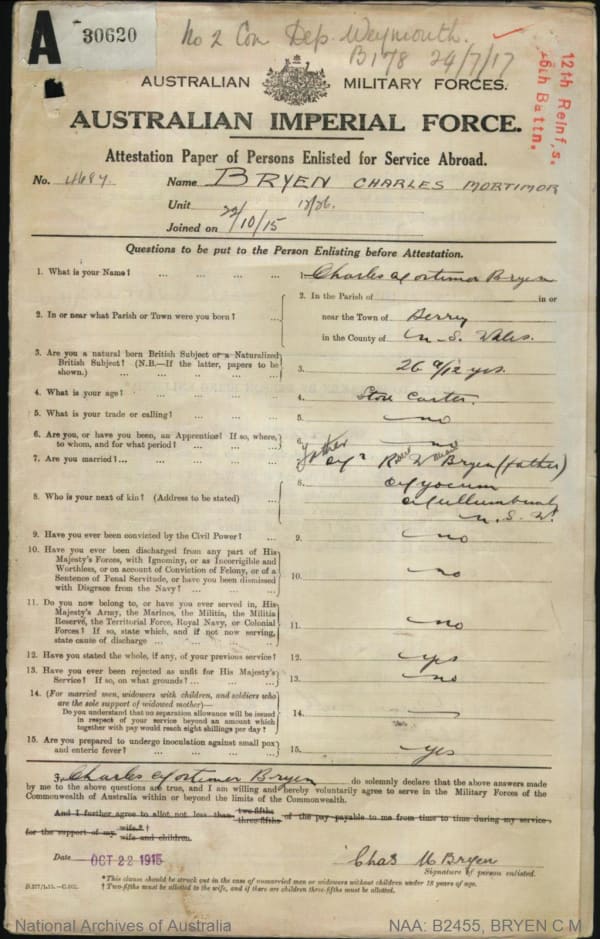 A 30620
No 2 Con Dep Weymouth.
B178 24/7/17
12th Reinf,s.
16th Battn.
AUSTRALIAN MILITARY FORCES.
AUSTRALIAN IMPERIAL FORCE.
Attestation Paper of Persons Enlisted for Service Abroad.
No. Name BRYEN CHARLES MORTIMOR
Unit 12/26.
Joined on 22/10/15
Questions to be put to the Person Enlisting before Attestation.
1. What is your Name? ... ... ... ... 1. Charles Mortimor Bryen
2. In or near what Parish or Town were you born? ... 2. In the Parish of in or
near the Town of Berry
in the County of N. S. Wales.
3. Are you a natural born British Subject or a Naturalized
British Subject? (N.B.—If the latter, papers to be
shown.) ... ... ... ... 3. 26 9/12 yrs.
4. What is your age? ... ... ... ... 4. Store Carter.
5. What is your trade or calling? ... ... ... 5. no
6. Are you, or have you been, an Apprentice? If so, where,
to whom, and for what period? ... ... ... 6. no
7. Are you married?... ... ... ... Father Bryen (father)
8. Who is your next of kin? (Address to be stated) ... 8.
Mullumbimby
N. S. W.
9. Have you ever been convicted by the Civil Power? ... 9. no
10. Have you ever been discharged from any part of His
Majesty's Forces, with Ignominy, or as Incorrigible and
Worthless, or on account of Conviction of Felony, or of a
Sentence of Penal Servitude, or have you been dismissed
with Disgrace from the Navy? ... ... ... 10. no
11. Do you now belong to, or have you ever served in, His
Majesty's Army, the Marines, the Militia, the Militia
Reserve, the Territorial Force, Royal Navy, or Colonial
Forces? If so, state which, and if not now serving,
state cause of discharge ... ... ... ... 11. no
12. Have you stated the whole, if any, of your previous service? 12. yes
13. Have you ever been rejected as unfit for His Majesty's
Service? If so, on what grounds? ... ... ... 13. no
14. (For married men, widowers with children, and soldiers who
are the sole support of widowed mother)—
Do you understand that no separation allowance will be issued
in respect of your service beyond an amount which
together with pay would reach eight shillings per day? 14. —
15. Are you prepared to undergo inoculation against small pox
and enteric fever? ... ... ... ... 15. yes
I, Charles Mortimer Bryen do solemnly declare that the above answers made
by me to the above questions are true, and I am willing and hereby voluntarily agree to serve in the Military Forces of the
Commonwealth of Australia within or beyond the limits of the Commonwealth.
And I further agree to allot not less than two-fifths
three-fifths of the pay payable to me from time to time during my service
for the support of my wife.* †
wife and children.
Date OCT 22 1915 Chas M Bryen
Signature of person enlisted.
*This clause should be struck out in the case of unmarried men or widowers without children under 18 years of age.
† Two-fifths must be allotted to the wife, and if there are children three-fifths must be allotted.
National Archives of Australia NAA: B2455, BRYEN C M